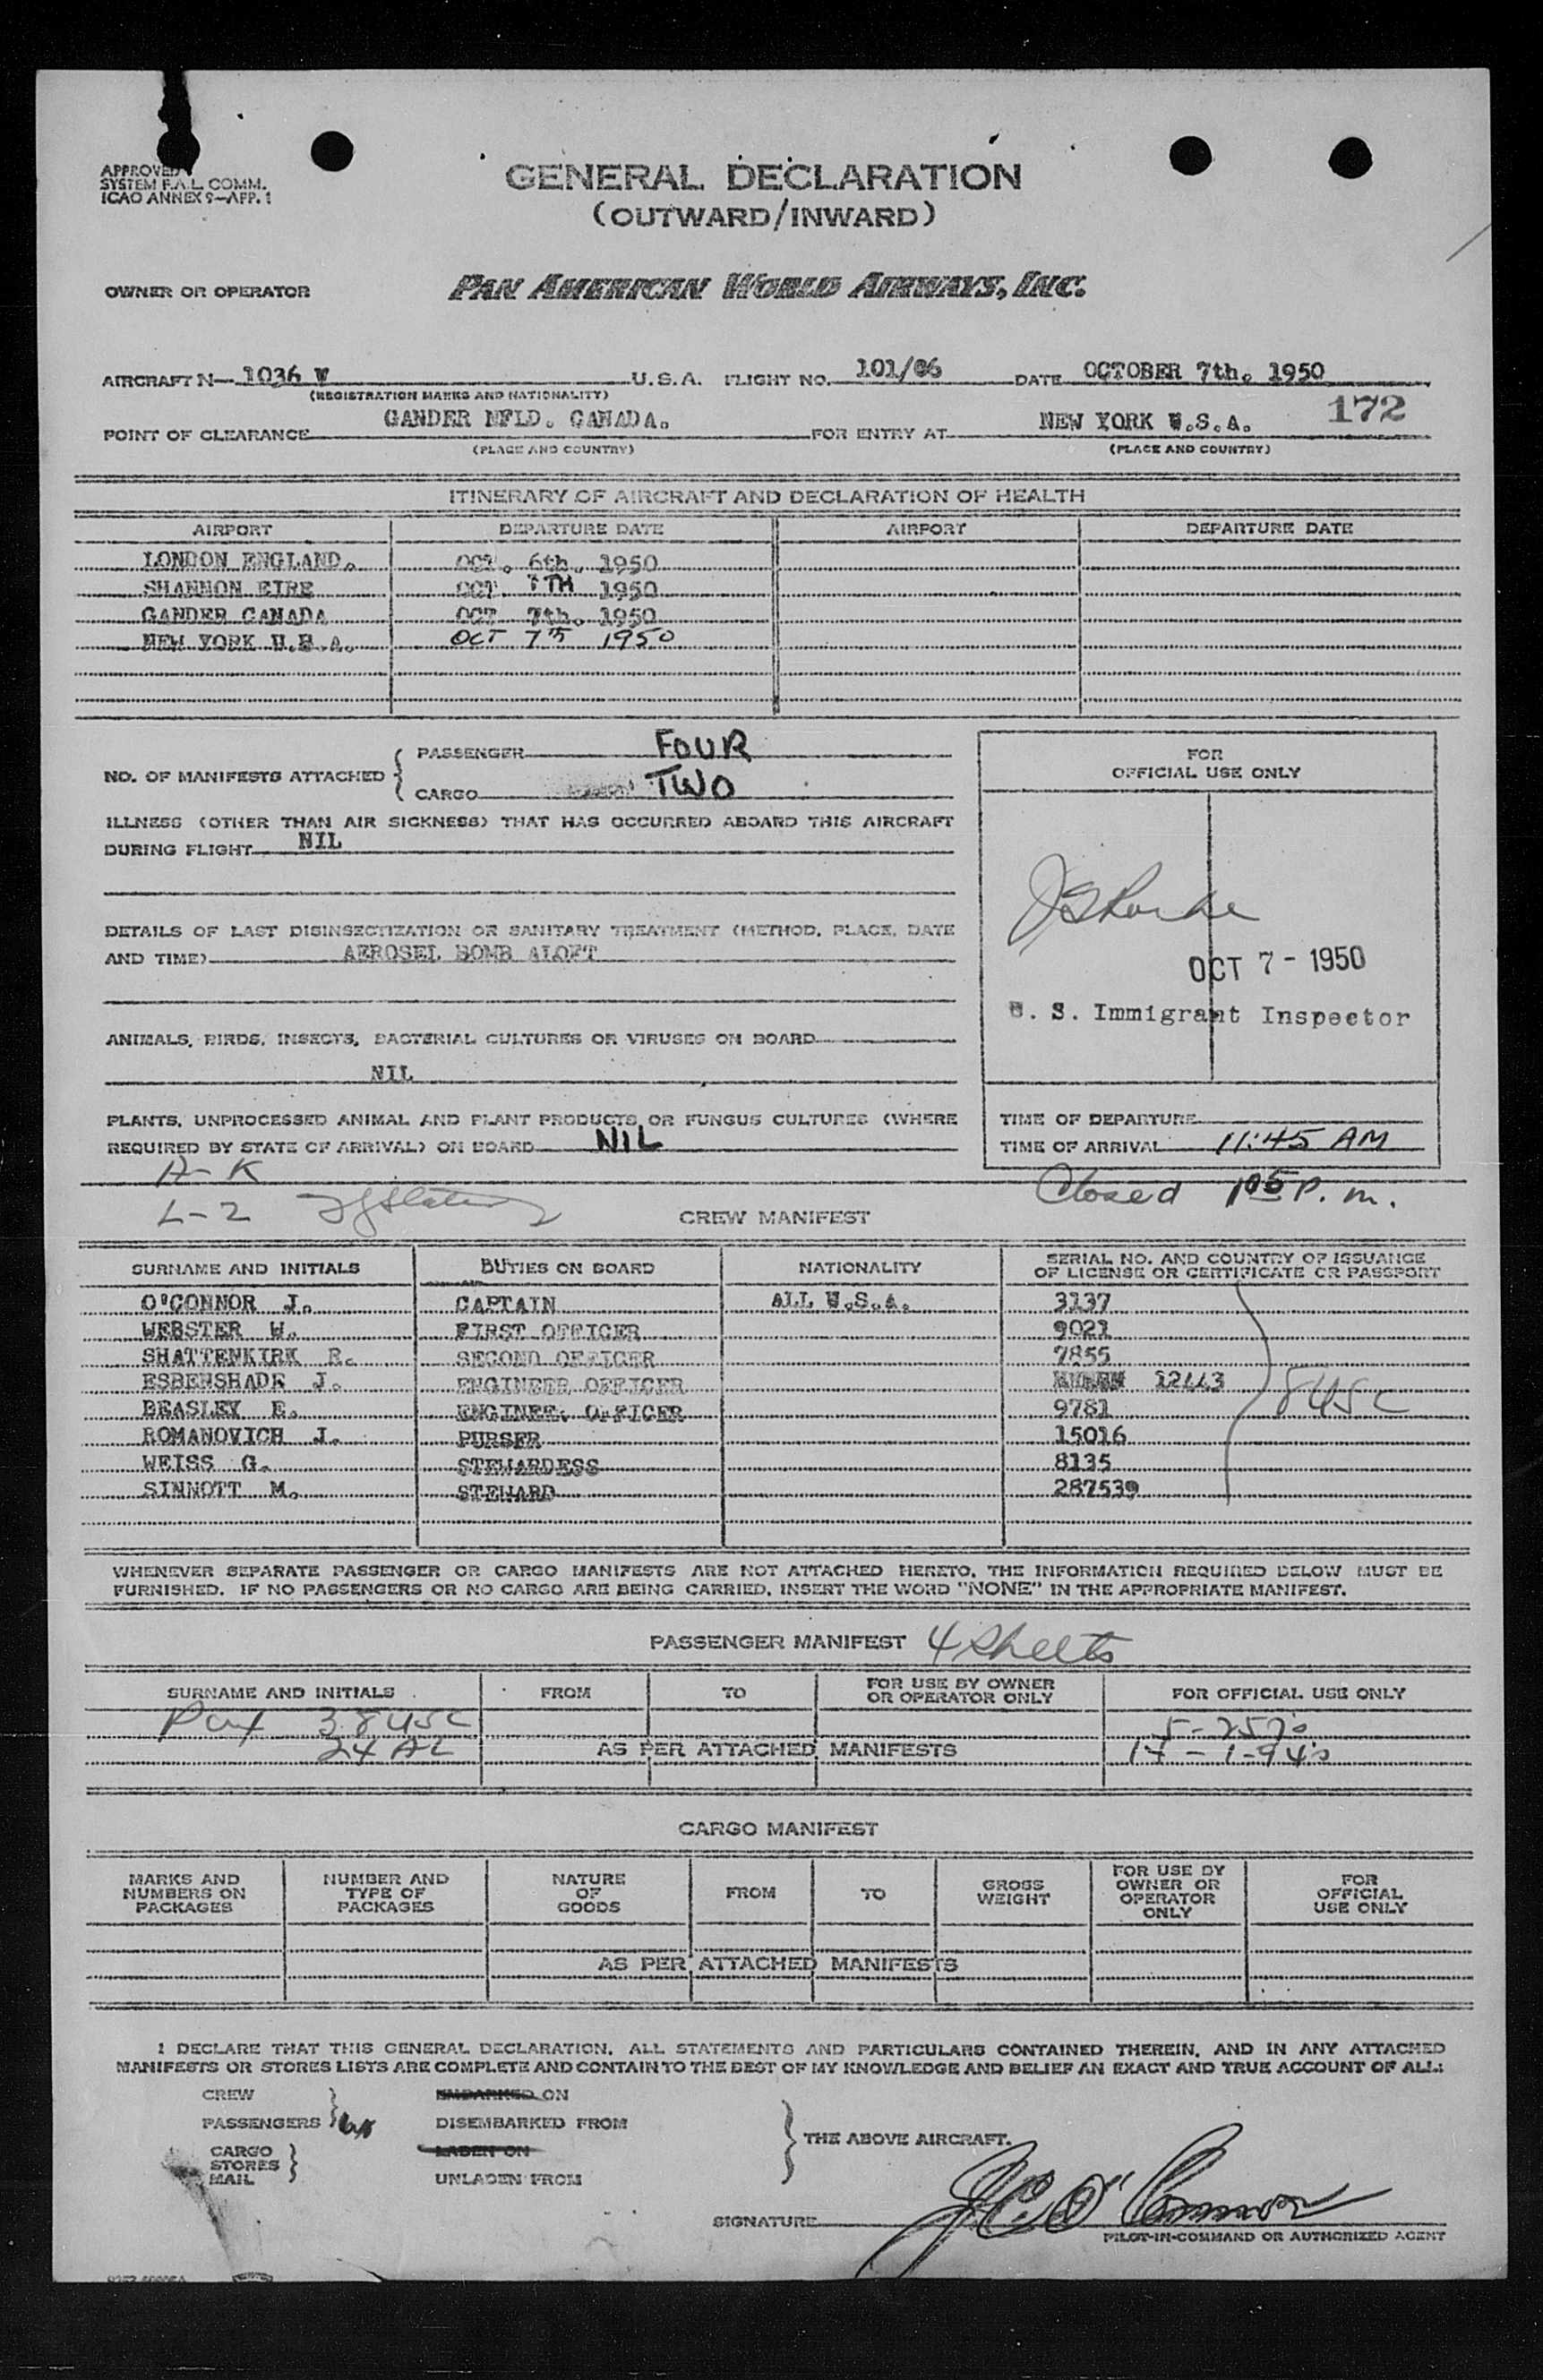 APPROVED
SYSTEM F.A.L. COMM.
ICAO ANNEX 9—APP. 1
GENERAL DECLARATION
(OUTWARD/INWARD)
OWNER OR OPERATOR PAN AMERICAN WORLD AIRWAYS, INC.
AIRCRAFT N— 1036 V U.S.A. FLIGHT NO. 101/06 DATE OCTOBER 7th. 1950
(REGISTRATION MARKS AND NATIONALITY)
172
POINT OF CLEARANCE GANDER NFLD. CANADA. FOR ENTRY AT NEW YORK U.S.A.
(PLACE AND COUNTRY) (PLACE AND COUNTRY)
ITINERARY OF AIRCRAFT AND DECLARATION OF HEALTH
AIRPORT DEPARTURE DATE AIRPORT DEPARTURE DATE
LONDON ENGLAND. OCT. 6th. 1950
SHANNON EIRE OCT. 7TH 1950
GANDER CANADA OCT 7th. 1950
NEW YORK U.S.A. OCT 7th 1950
NO. OF MANIFESTS ATTACHED { PASSENGER FOUR
CARGO TWO
ILLNESS (OTHER THAN AIR SICKNESS) THAT HAS OCCURRED ABOARD THIS AIRCRAFT
DURING FLIGHT NIL
DETAILS OF LAST DISINSECTIZATION OR SANITARY TREATMENT (METHOD, PLACE, DATE
AND TIME) AEROSEL BOMB ALOFT
ANIMALS, BIRDS, INSECTS, BACTERIAL CULTURES OR VIRUSES ON BOARD
NIL
PLANTS, UNPROCESSED ANIMAL AND PLANT PRODUCTS OR FUNGUS CULTURES (WHERE
REQUIRED BY STATE OF ARRIVAL) ON BOARD NIL
FOR
OFFICIAL USE ONLY
OCT 7 - 1950
U. S. Immigrant Inspector
TIME OF DEPARTURE
TIME OF ARRIVAL 11:45 AM
Closed 105 P. m.
A- K
L-2
CREW MANIFEST
SURNAME AND INITIALS DUTIES ON BOARD NATIONALITY SERIAL NO. AND COUNTRY OF ISSUANCE
OF LICENSE OR CERTIFICATE OR PASSPORT
O'CONNOR J. CAPTAIN ALL U.S.A. 3137
WEBSTER W. FIRST OFFICER 9021
SHATTENKIRK R. SECOND OFFICER 7855
ESBENSHADE J. ENGINEER OFFICER 12443
BEASLEY E. ENGINEER OFFICER 9781
8USC
ROMANOVICH J. PURSER 15016
WEISS G. STEWARDESS 8135
SINNOTT M. STEWARD 287539
WHENEVER SEPARATE PASSENGER OR CARGO MANIFESTS ARE NOT ATTACHED HERETO, THE INFORMATION REQUIRED BELOW MUST BE
FURNISHED. IF NO PASSENGERS OR NO CARGO ARE BEING CARRIED, INSERT THE WORD "NONE" IN THE APPROPRIATE MANIFEST.
PASSENGER MANIFEST 4 Sheets
SURNAME AND INITIALS FROM TO FOR USE BY OWNER
OR OPERATOR ONLY FOR OFFICIAL USE ONLY
Pax 38 USC 5-257's
24 AL AS PER ATTACHED MANIFESTS 17 - 1-94's
CARGO MANIFEST
MARKS AND
NUMBERS ON
PACKAGES
NUMBER AND
TYPE OF
PACKAGES
NATURE
OF
GOODS
FROM
TO
GROSS
WEIGHT
FOR USE BY
OWNER OR
OPERATOR
ONLY
FOR
OFFICIAL
USE ONLY
AS PER ATTACHED MANIFESTS
I DECLARE THAT THIS GENERAL DECLARATION, ALL STATEMENTS AND PARTICULARS CONTAINED THEREIN, AND IN ANY ATTACHED
MANIFESTS OR STORES LISTS ARE COMPLETE AND CONTAIN TO THE BEST OF MY KNOWLEDGE AND BELIEF AN EXACT AND TRUE ACCOUNT OF ALL:
CREW EMBARKED ON
PASSENGERS DISEMBARKED FROM
THE ABOVE AIRCRAFT.
CARGO LADEN ON
STORES
MAIL UNLADEN FROM
SIGNATURE J C O'Connor
PILOT-IN-COMMAND OR AUTHORIZED AGENT